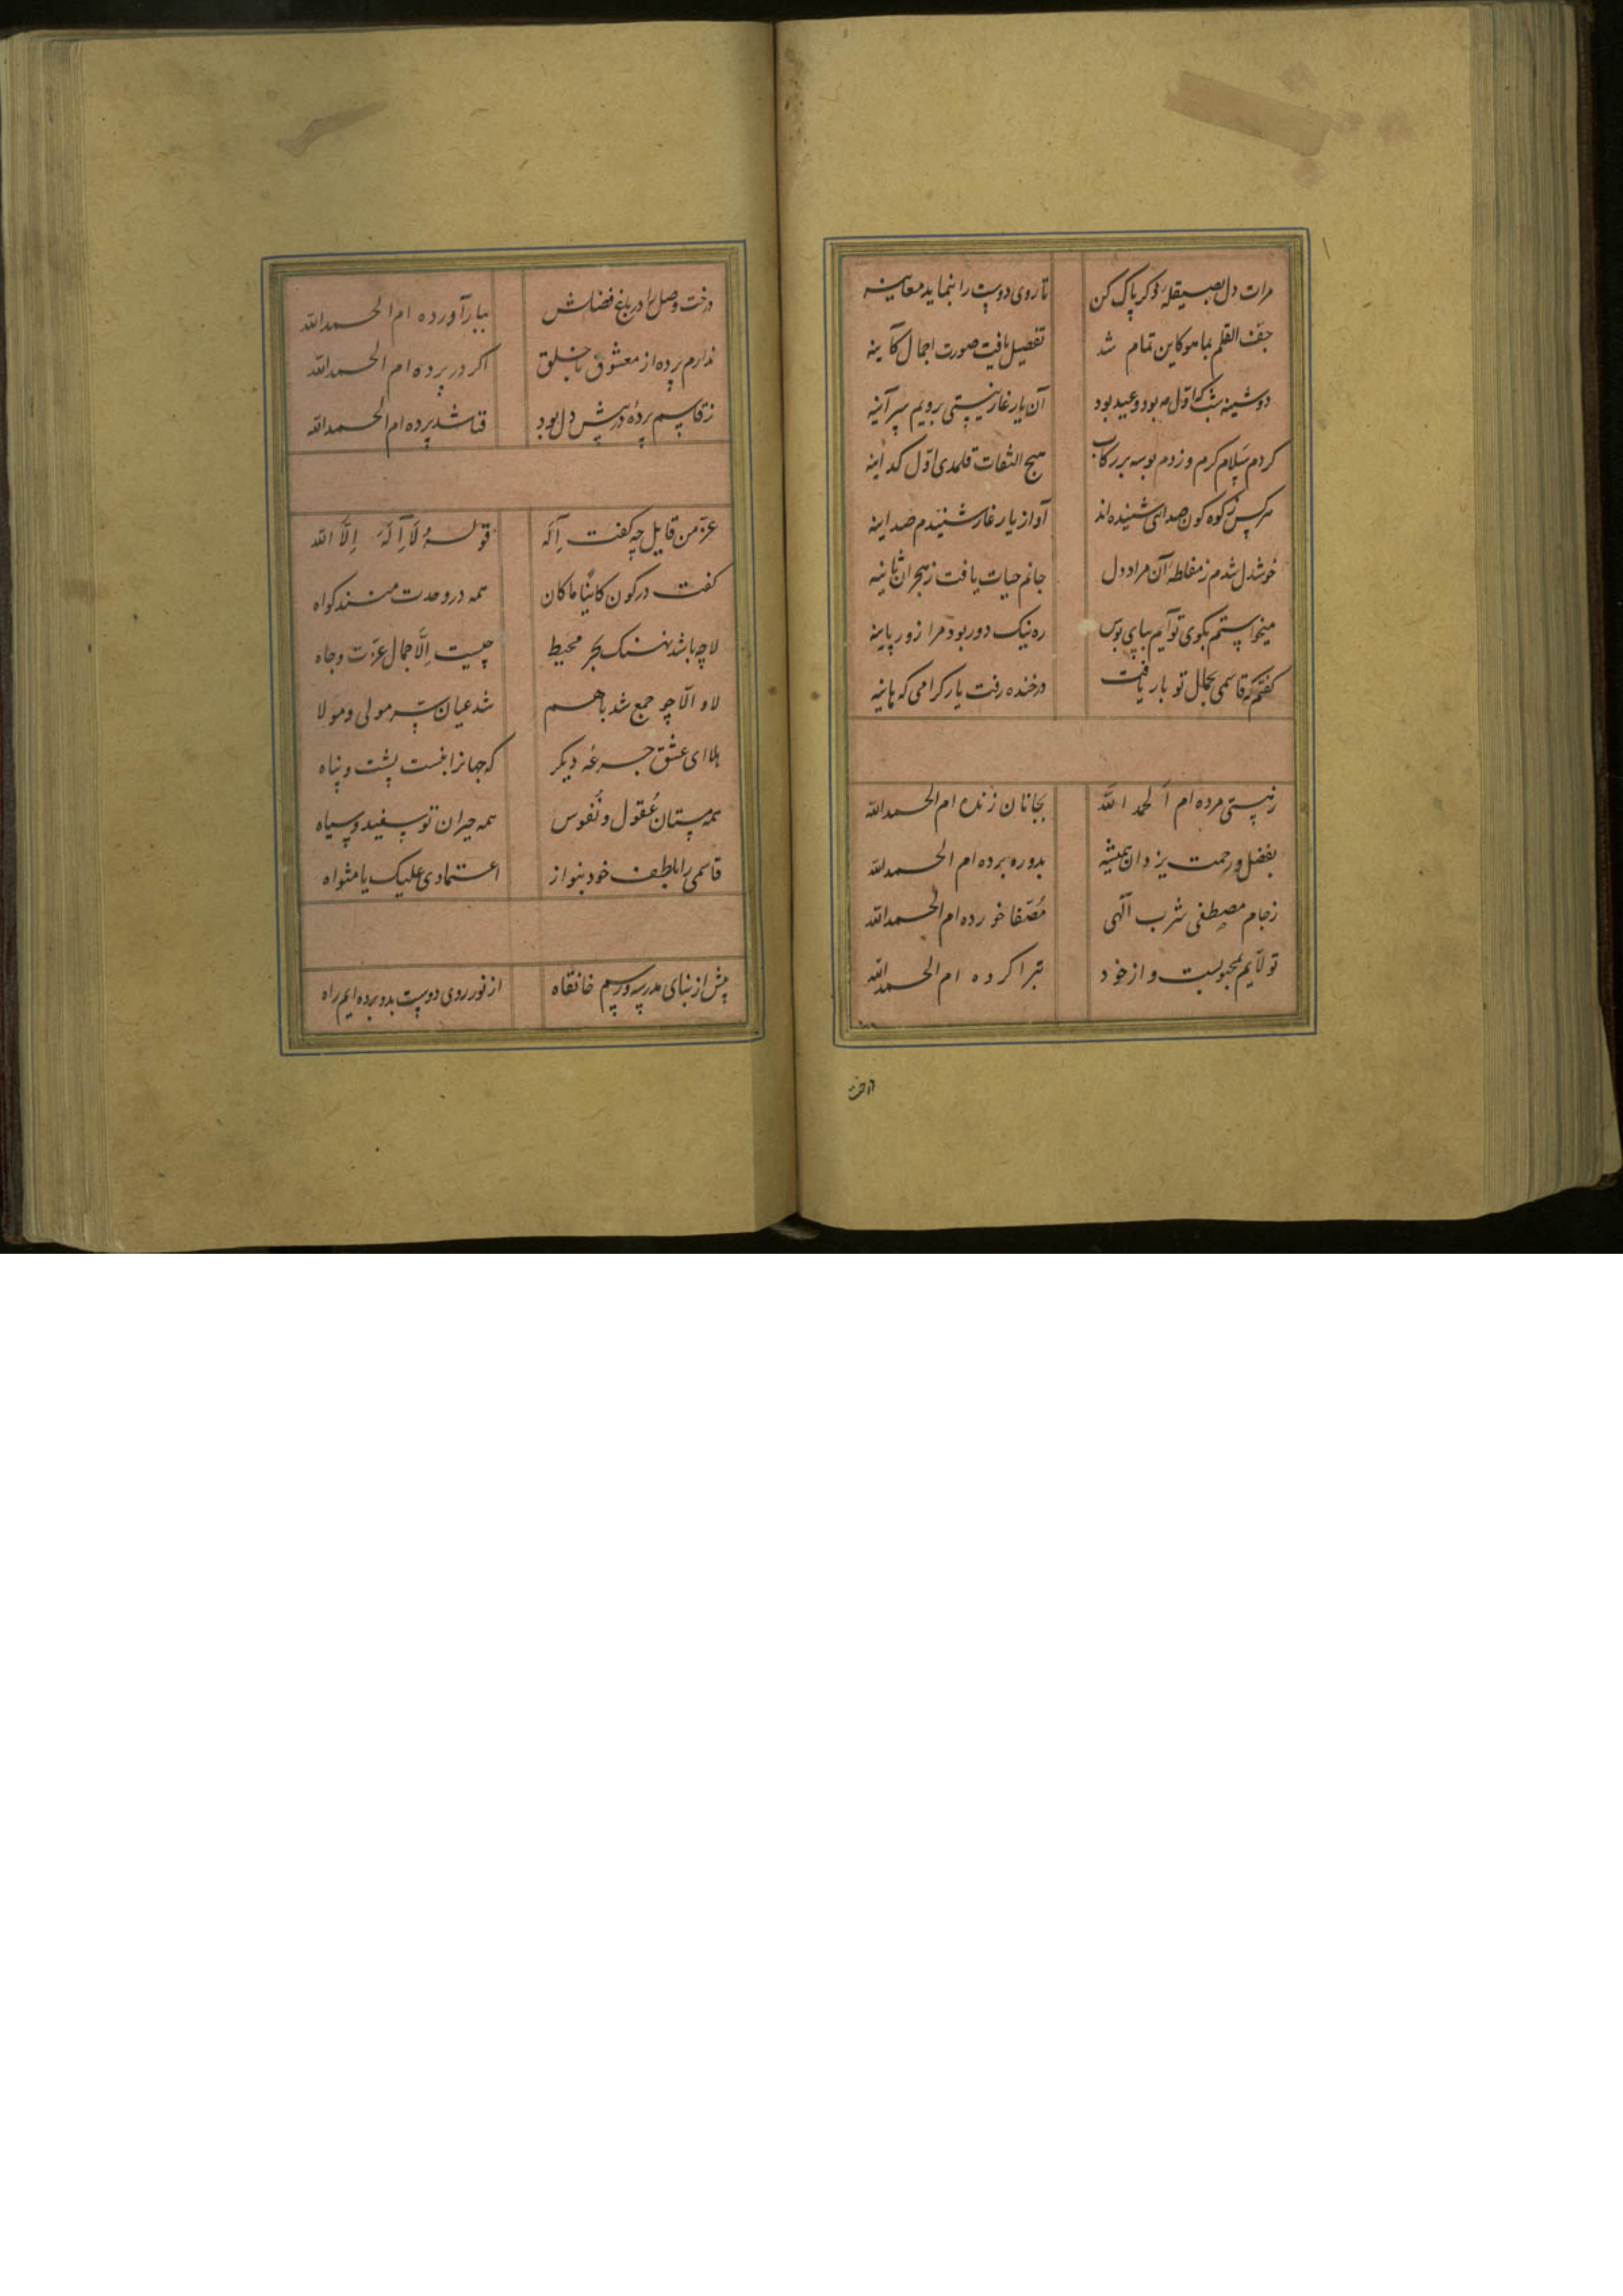 مرات دل بصیقله ذکر پاک کن تا روی دوست را بنماید معاینه
جف القلم بما هو کاین تمام شد تفصیل یافت صورت اجمال کاینه
دوشینه شب که اول مه بود و عید بود آن یار غار نیستی برویم سرآینه
کردم سلام کرم و زدم بوسه بر رکاب هیچ التفات قلمدی اول کداینه
هرکس ز کوه کون صدایی شنیده‌اند آواز یار غار شنیدم صداینه
خوشدل شدم ز مغلطه آن مراد دل جانم حیات یافت ز هجران ثانیه
میخواستم بکوی تو آیم بپای بوس ره نیک دور بود مرا زور پاینه
کفتم که قاسمی بجمال تو بار یافت در خنده رفت یار کرامی که هاینه
ز نیستی مرده ام الحمد الله بجانان زنده ام الحمدالله
بفضل و رحمت یزدان همیشه بدو ره برده ام الحمدلله
ز جام مصطفی شرب الهی مصفا خورده ام الحمدالله
تولایم بمحبوبست و از خود تبرا کرده ام الحمدالله
درخت
درخت وصل را در باغ فضلش ببار آورده ام الحمدالله
ندارم پرده از معشوق با خلق اکر در پرده ام الحمدالله
ز قاسم پرده در پیش دل بود فنا شد پرده ام الحمدالله
عز من قایل چه کفت اله قوله لا اله الا الله
کفت در کون کاینا ما کان همه در وحدت منند کواه
لا چه باشد نهنک بحر محیط چیست الا جمال عزت و جاه
لا و الا چو جمع شد باهم شد عیان سر مولی و مولا
هله ای عشق جرعه دیکر که جهانرا بتست پشت و پناه
همه مستان عقول و نفوس همه حیران تو سفید و سیاه
قاسمی را بلطف خود بنواز اعتمادی علیک یا مثواه
پیش از بنای مدرسه و رسم خانقاه از نور روی دوست بدو برده ایم راه